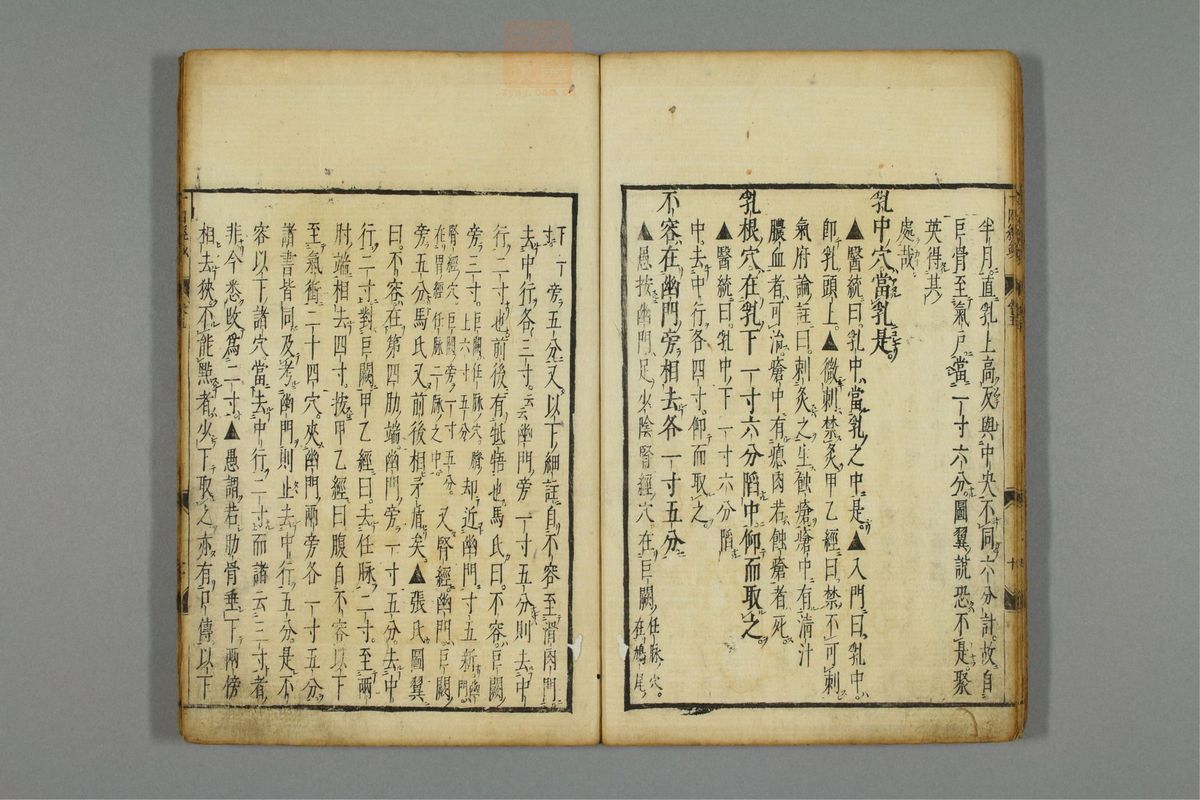 半月。直乳上高及與中央不同六分計。故自
巨骨至氣戶當一寸六分。圖翼說恐不是聚
英得其
處哉
乳中穴當乳是。
▲醫統曰。乳中當乳之中是。▲入門曰。乳中。
即乳頭上。▲微刺禁灸。甲乙經曰。禁不可刺
氣府論註曰。刺灸之生蝕瘡瘡中有清汁
膿血者可治瘡中有瘜肉若蝕瘡者死。
乳根穴在乳下一寸六分陷中仰而取之
▲醫統曰。乳中下一寸六分陷
中。去中行各四寸。仰而取之。
不容在幽門旁相去各一寸五分
▲愚按幽門足少陰腎經穴在巨闕任脉穴。在鳩尾
下一寸旁五分又以下細註自不容至滑肉門。
去中行各三寸。云幽門旁一寸五分則去中
行二寸也前後有牴牾也馬氏曰。不容巨闕
旁三寸。巨闕任脉穴。臍上六寸五分却近幽門寸五新幽門
腎經穴。巨闕旁一寸五分。在胃經任脉二寸之中。又腎經。幽門巨闕
旁五分馬氏又前後相矛盾矣。▲張氏圖翼
曰。不容在第四肋端。幽門旁一寸五分。去中
行二寸對巨闕甲乙經曰。去任脉二寸。至兩
肋端相去四寸。按甲乙經曰腹自不容以下
至氣衝二十四穴。夾幽門兩旁各一寸五分
諸書皆同及考幽門則止去中行五分是不
容以下諸穴當去中行二寸而諸云三寸者
非今悉改爲二寸▲愚謂若肋骨垂下兩傍
相去狹不能點者少下取之亦有口傳以下